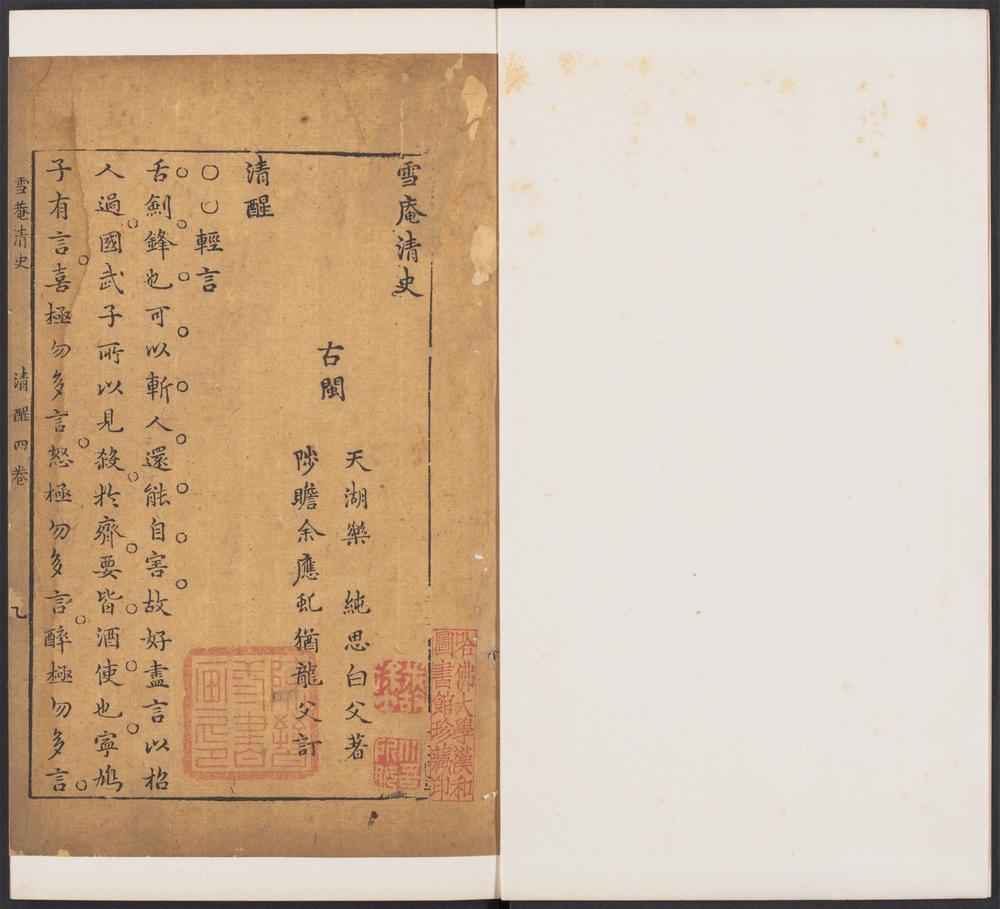 雪庵清史
古閩
天湖樂 純思白父著
陟瞻余應虬猶龍父訂
清醒
○○輕言
舌劍鋒也可以斬人還能自害故好盡言以招
人過國武子所以見殺於齊要皆酒使也寧鳩
子有言喜極勿多言怒極勿多言醉極勿多言
雪菴清史 清醒四卷 乙
哈佛大學漢和
圖書館珍藏印